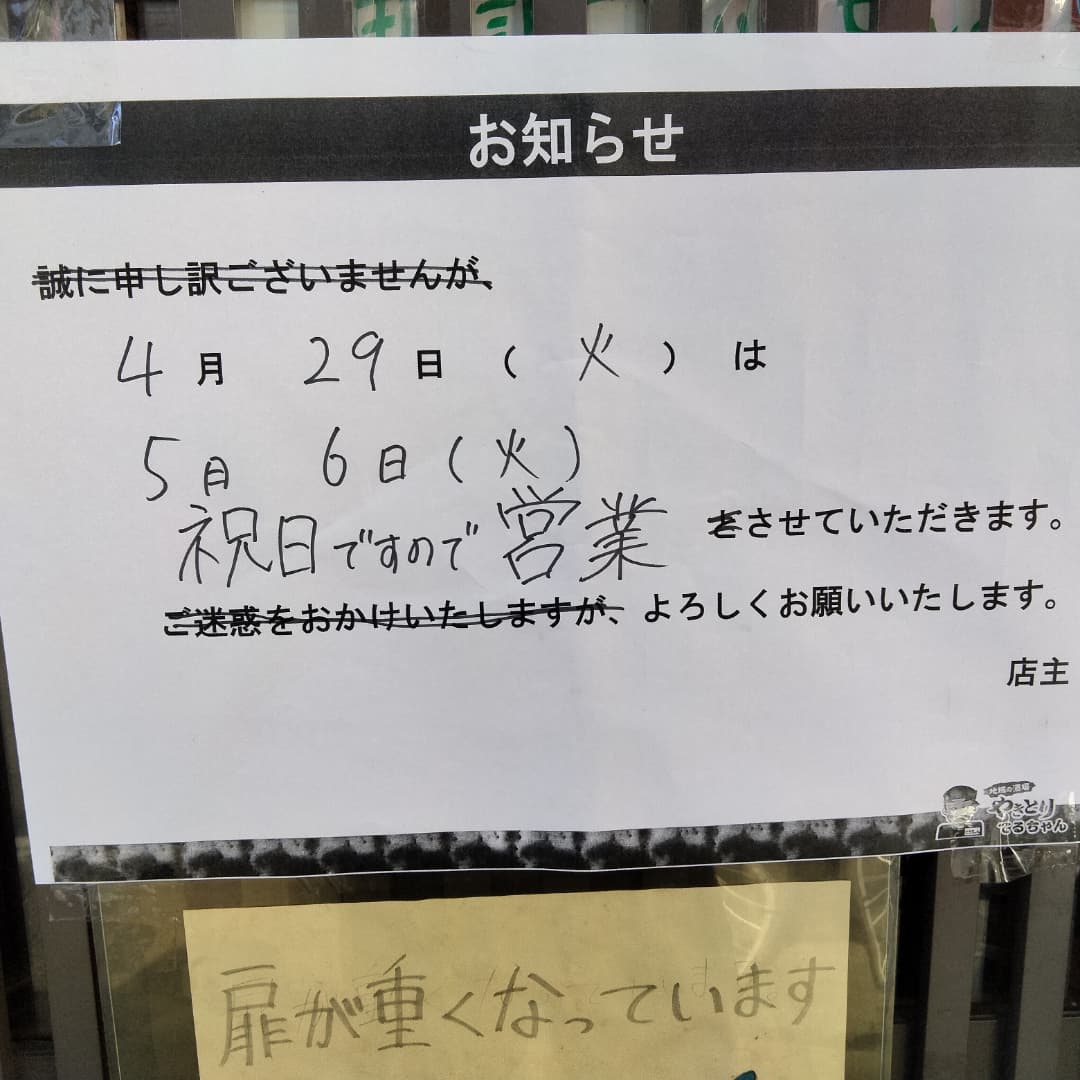 お知らせ
誠に申し訳ございませんが、
4月 29日 ( 火 ) は
5月 6日 (火)
祝日ですので営業 をさせていただきます。
ご迷惑をおかけいたしますが、よろしくお願いいたします。
店主
地域の酒場
やきとり
てるちゃん
扉が重くなっています